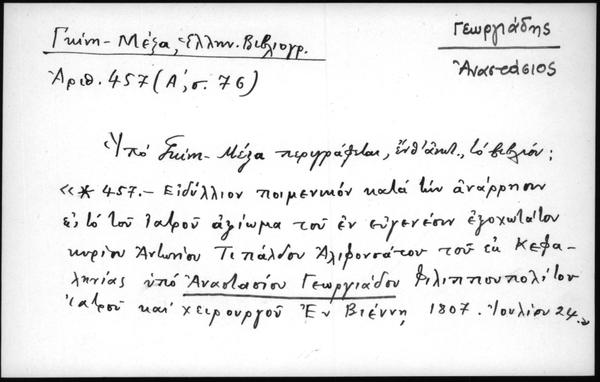 Γκίνη-Μέξα, Ἑλλην. Βιβλιογρ.
Γεωργιάδης
Ἀναστάσιος
Ἀριθ. 457 (Α΄, σ. 76)
Ὑπό Γκίνη-Μέξα περιγράφεται, ἔνθ' ἀνωτ., τό βιβλίον:
«* 457.- Εἰδύλλιον ποιμενικόν κατά τήν ἀνάρρησιν
εἰς τό τοῦ ἰατροῦ ἀξίωμα τοῦ ἐν εὐγενέσιν ἐξοχωτάτου
κυρίου Ἀντωνίου Τιπάλδου Ἀλιφονσάτου τοῦ ἐκ Κεφα-
ληνίας ὑπό Ἀναστασίου Γεωργιάδου Φιλιππουπολίτου
ἰατροῦ καί χειρουργοῦ Ἐν Βιέννῃ 1807. Ἰουλίου 24.»